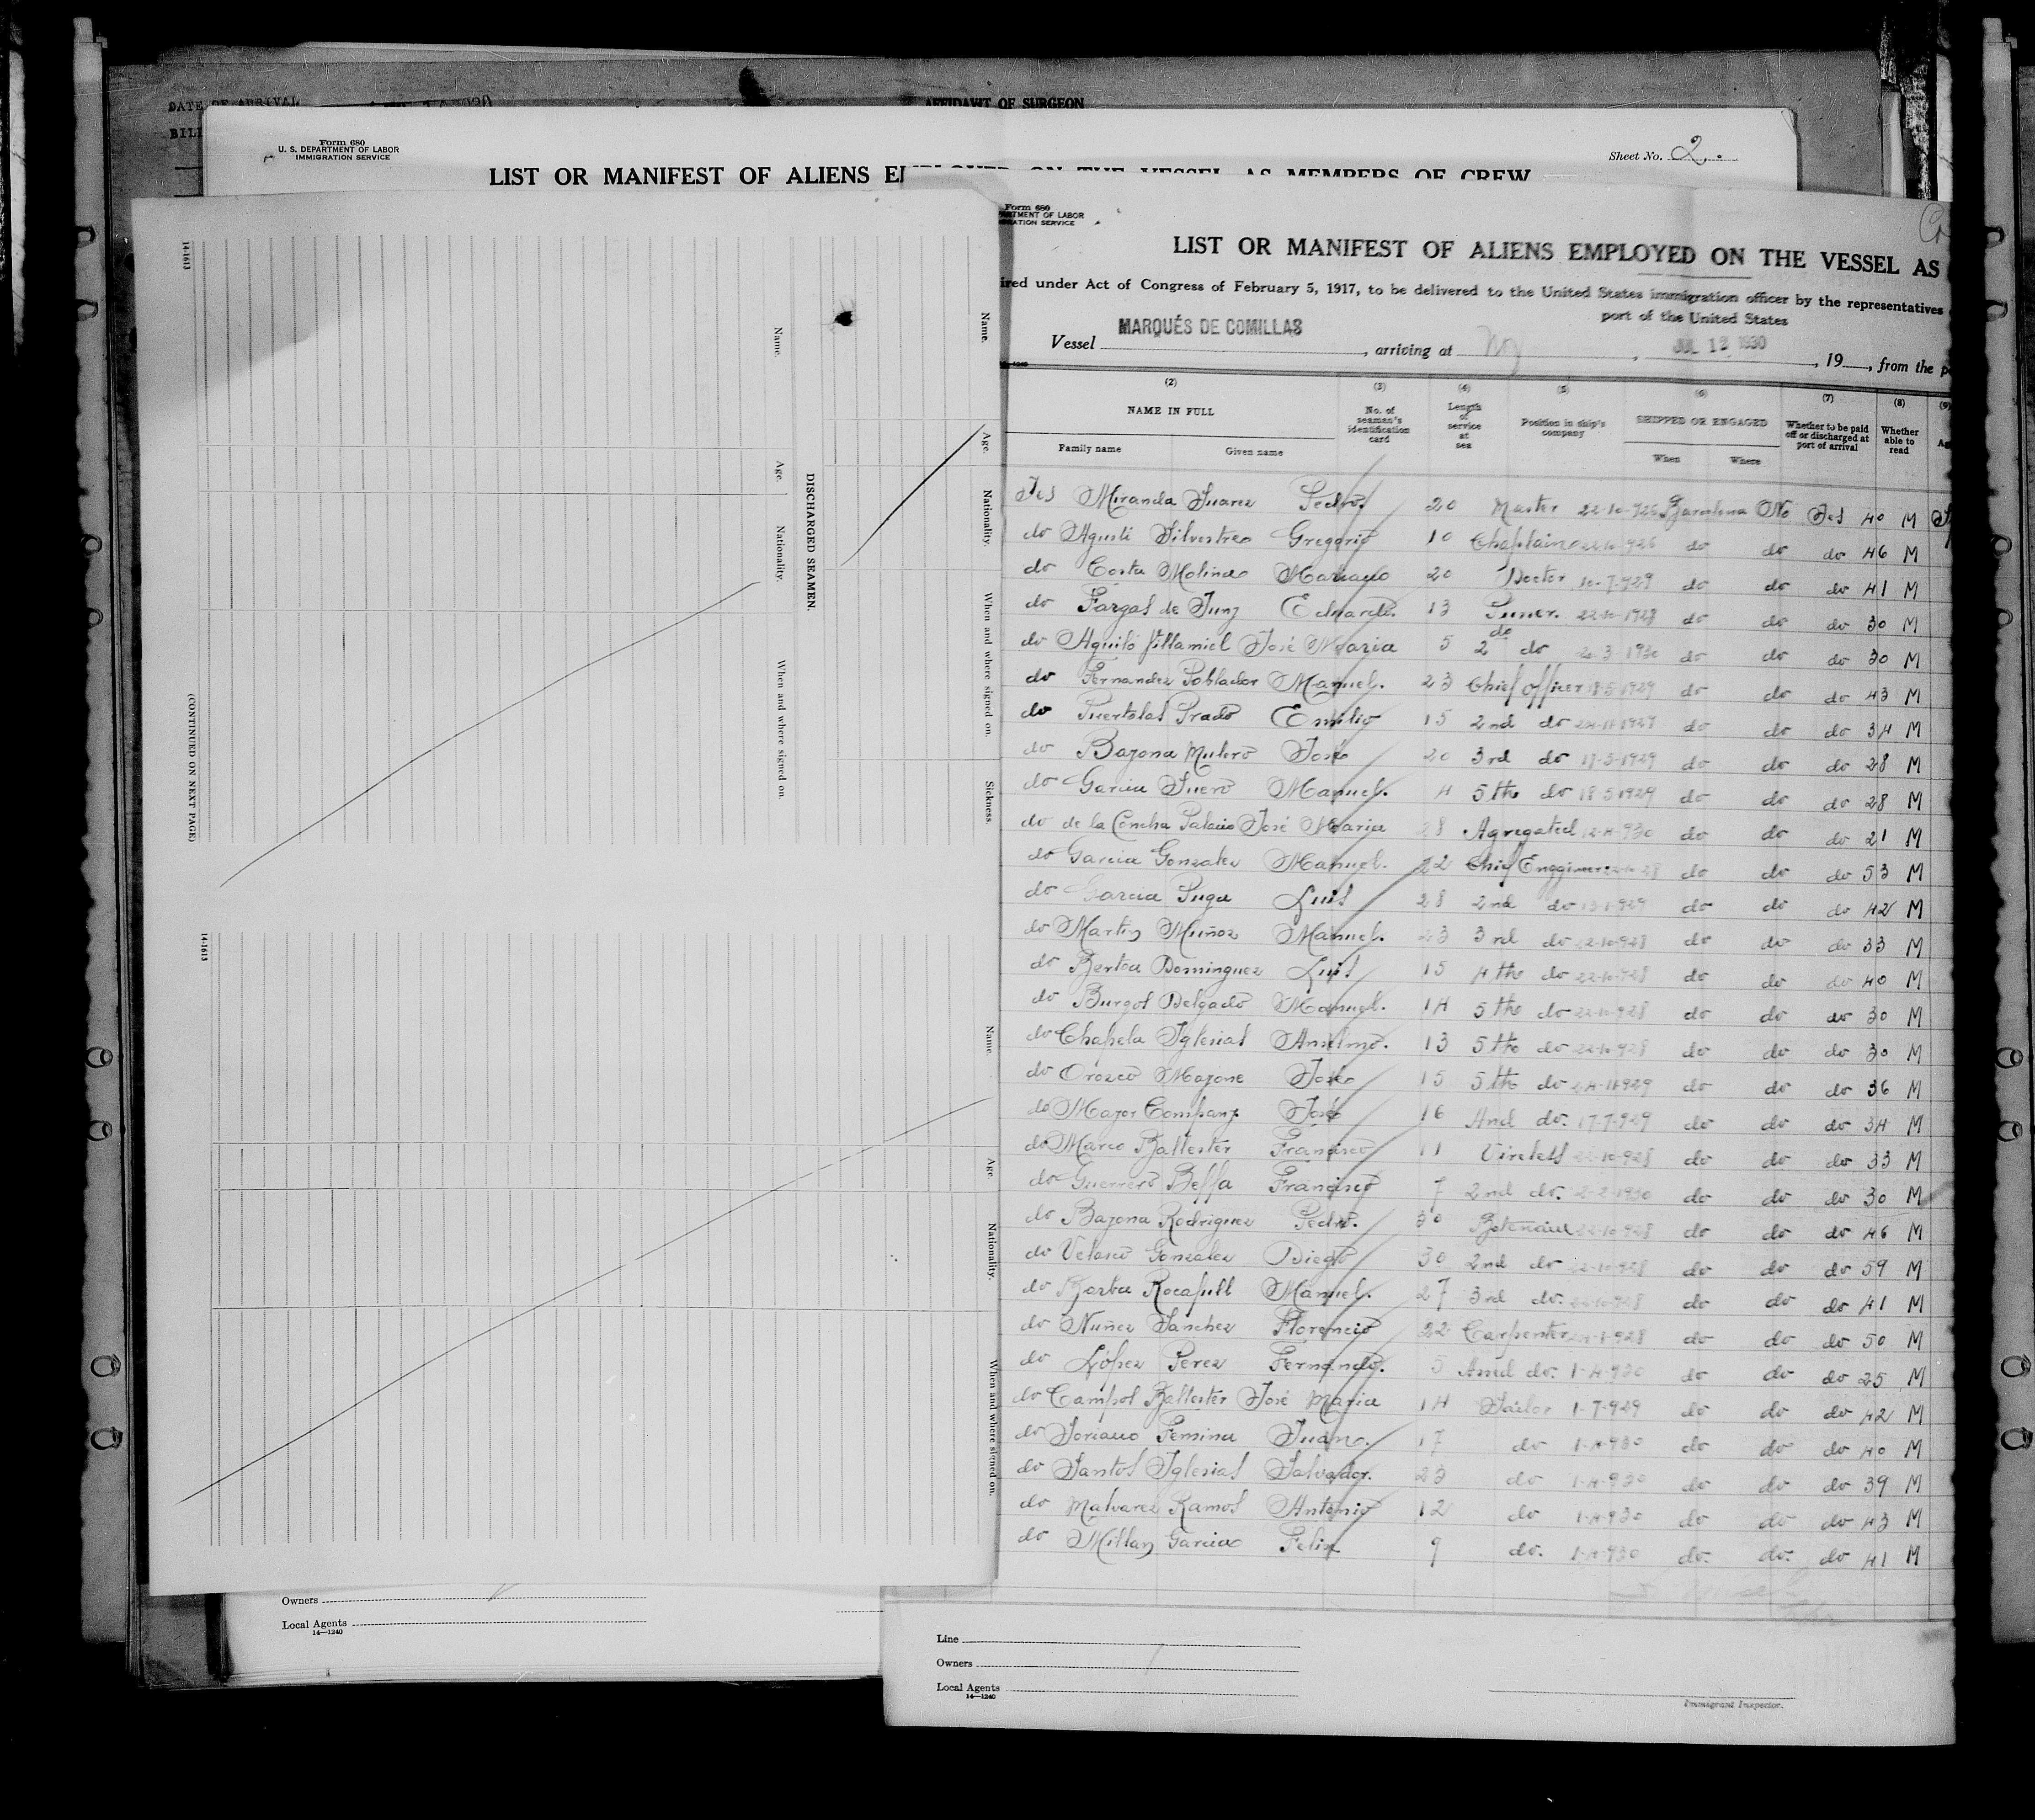 DATE OF ARRIVAL
AFFIDAVIT OF SURGEON
Form 680
U. S. DEPARTMENT OF LABOR
IMMIGRATION SERVICE
Sheet No. 2.
LIST OR MANIFEST OF ALIENS EMPLOYED ON THE VESSEL AS MEMBERS OF CREW
14-1613
Name.
Age.
Nationality.
When and where signed on.
Sickness.
DISCHARGED SEAMEN.
Name.
Age.
Nationality.
When and where signed on.
(CONTINUED ON NEXT PAGE)
14-1613
Name.
Age.
Nationality.
When and where signed on.
Owners
Local Agents
14—1240
Form 680
RTMENT OF LABOR
RATION SERVICE
LIST OR MANIFEST OF ALIENS EMPLOYED ON THE VESSEL AS
ired under Act of Congress of February 5, 1917, to be delivered to the United States immigration officer by the representatives
port of the United States
Vessel MARQUÉS DE COMILLAS, arriving at JUL 12 1930, 19 , from the p
(2) (3) (4) (5) (6) (7) (8) (9)
NAME IN FULL
Family name Given name
No. of seaman's identification card
Length of service at sea
Position in ship's company
SHIPPED OR ENGAGED
When Where
Whether to be paid off or discharged at port of arrival
Whether able to read
Yes Miranda Suarez Pedro. 20 Master 22-10-928 Barcelona No Yes 40 M
do Agusti Silvestre Gregorio 10 Chaplain do do do 46 M
do Costa Molina Mariano 20 Doctor 10-7-929 do do do 41 M
do Fargas de Juny Eduardo. 13 Purser. 22-10-1928 do do do 30 M
do Aguiló Villamiel José Maria 5 2do do do do do 30 M
do Fernandez Poblador Manuel. 23 Chief officer 18-5-1929 do do do 43 M
do Puertolas Prado Emilio 15 2nd do do do do 34 M
do Bayona Mulero José 20 3rd do do do do 28 M
do Garcia Suero Manuel. 4 5th do 18 5 1929 do do do 28 M
do de la Concha Palacio José Maria Agregated do do do 21 M
do Garcia Gonzalez Manuel. 22 Chief Engginer do do do 53 M
do Garcia Puga Luis 28 2nd do do do do 42 M
do Martin Muñoz Manuel. 23 3rd do 22-10-928 do do do 33 M
do Bertoa Dominguez Luis 15 4th do 22-10-928 do do do 40 M
do Burgos Delgado Manuel. 14 5th do 22-10-928 do do do 30 M
do Chapela Iglesias Anselmo. 13 5th do 22-10-928 do do do 30 M
do Orozco José 15 5th do do do do 36 M
do Mayor Company José 16 do. 17-7-929 do do do 34 M
do Marco Ballester Francisco 11 Wireless 22-10-928 do do do 33 M
do Guerrero Beffa Francisco 7 2nd do. do do do 30 M
do Bayona Rodriguez Pedro. 30 22-10-928 do do do 46 M
do Velasco Gonzalez Diego 30 2nd do 22-10-928 do do do 59 M
do Barba Rocafull Manuel. 27 3rd do. 22-10-928 do do do 41 M
do Nuñez Sanchez Florencio 22 Carpenter do do do 50 M
do López Perez Fernando. 5 do. 1-4-930 do do do 25 M
do Campos Ballester José Maria 14 Sailor 1-7-929 do do do 42 M
do Soriano Femina Juan. 17 do 1-4-930 do do do 40 M
do Santos Iglesias Salvador. 23 do 1-4-930 do do do 39 M
do Malvarez Ramos Antonio 12 do 1-4-930 do do do 43 M
do Millan Garcia Felix 9 do. 1-4-930 do. do. do 41 M
Line
Owners
Local Agents
14—1240
Immigrant Inspector.